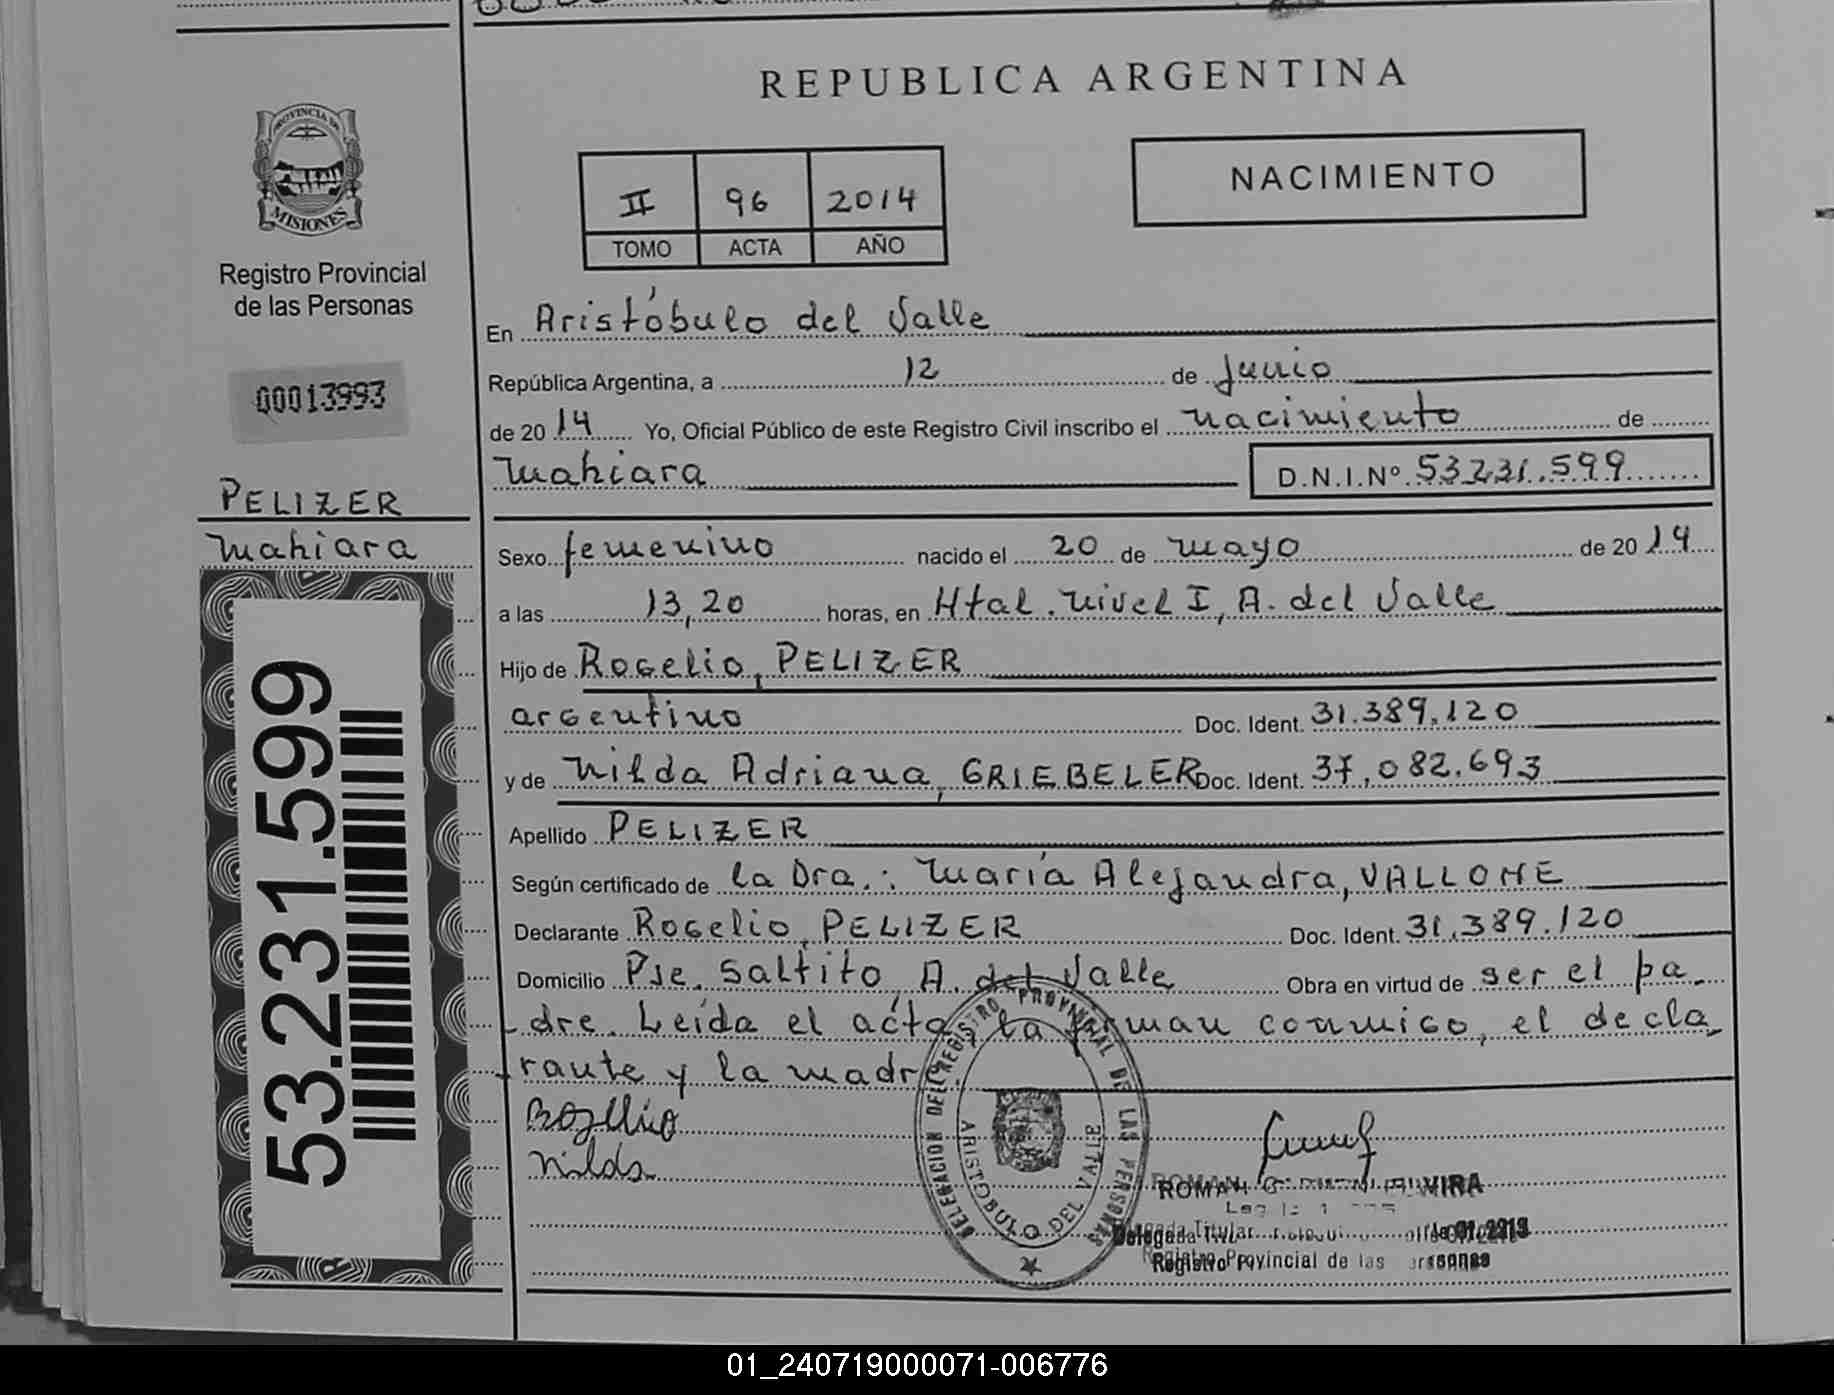 REPUBLICA ARGENTINA
PROVINCIA DE
MISIONES
Registro Provincial
de las Personas
00013993
PELIZER
Mahiara
53.231.599
II 96 2014
TOMO ACTA AÑO
NACIMIENTO
En Aristóbulo del Valle
República Argentina, a 12 de Junio
de 2014 Yo, Oficial Público de este Registro Civil inscribo el nacimiento de
Mahiara D.N.I.Nº 53231.599
Sexo femenino nacido el 20 de mayo de 2014
a las 13,20 horas, en Htal. Nivel I, A. del Valle
Hijo de Rogelio, PELIZER
argentino Doc. Ident. 31.389.120
y de Nilda Adriana, GRIEBELER Doc. Ident. 37.082.693
Apellido PELIZER
Según certificado de la Dra.: María Alejandra, VALLONE
Declarante Rogelio, PELIZER Doc. Ident. 31.389.120
Domicilio Pje. Saltito, A. del Valle Obra en virtud de ser el pa-
dre. Leída el acta, la firman conmigo, el decla-
rante y la madre.
Rogelio
Nilda
DELEGACION DEL REGISTRO PROVINCIAL DE LAS PERSONAS
ARISTOBULO DEL VALLE
ROMAN
Delegada Titular
Registro Provincial de las Personas
01_240719000071-006776